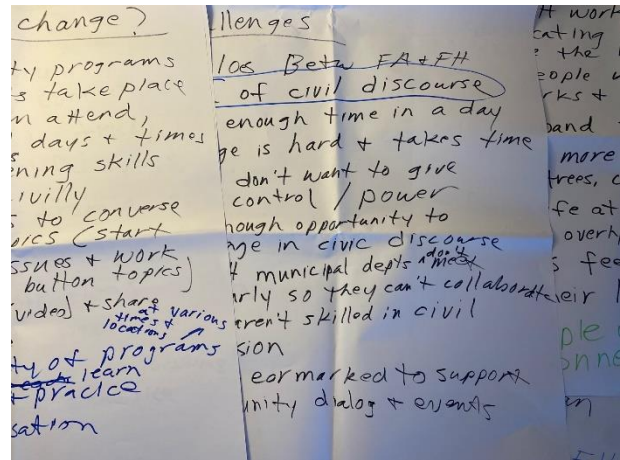 change?
ty programs
s take place
n attend,
days + times
ning skills
ivilly
s to converse
pics (start
ssues + work
button topics)
video) + share at various
times +
locations
ty of programs
learn
+ pracice
sation
llenges
los Betw FA + FH
of civil discourse
enough time in a day
ge is hard + takes time
don't want to give
control / power
nough opportunity to
ge in civic discourse
municipal depts don't meet
rly so they can't collaborate
ren't skilled in civil
sion
earmarked to support
unity dialog + events
work
cating
the
eople
rks +
band
more
trees, c
fe at
overh
s fee
eir
ple
nne